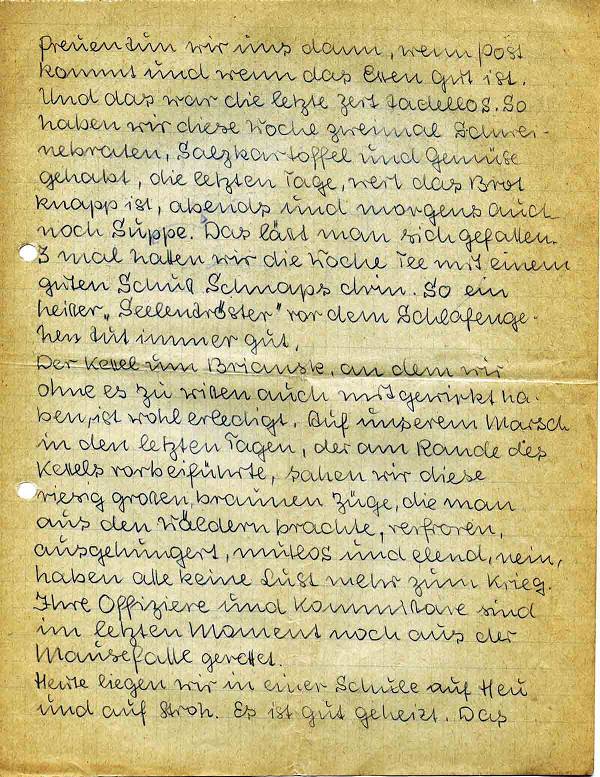 freuen tun wir uns dann, wenn Post
kommt und wenn das Essen gut ist.
Und das war die letzte Zeit tadellos. So
haben wir diese Woche zweimal Schwei-
nebraten, Salzkartoffel und Gemüse
gehabt, die letzten Tage, weil das Brot
knapp ist, abends und morgens auch
noch Suppe. Das läßt man sich gefallen.
3 mal hatten wir die Woche Tee mit einem
guten Schuß Schnaps drin. So ein
heißer „Seelentröster" vor dem Schlafenge-
hen tut immer gut.
Der Kessel um Brianske, an dem wir
ohne es zu wißen auch mitgewirkt ha-
ben, ist wohl erledigt. Auf unserem Marsch
in den letzten Tagen, der am Rande des
Kessels vorbeiführte, sahen wir diese
riesig großen, braunen Züge, die man
aus den Wäldern brachte, verfroren,
ausgehungert, mutlos und elend, nein,
haben alle keine Lust mehr zum Krieg.
Ihre Offiziere und Kommissare sind
im letzten Moment noch aus der
Mausefalle gerettet.
Heute liegen wir in einer Schule auf Heu
und auf Stroh. Es ist gut geheizt. Das